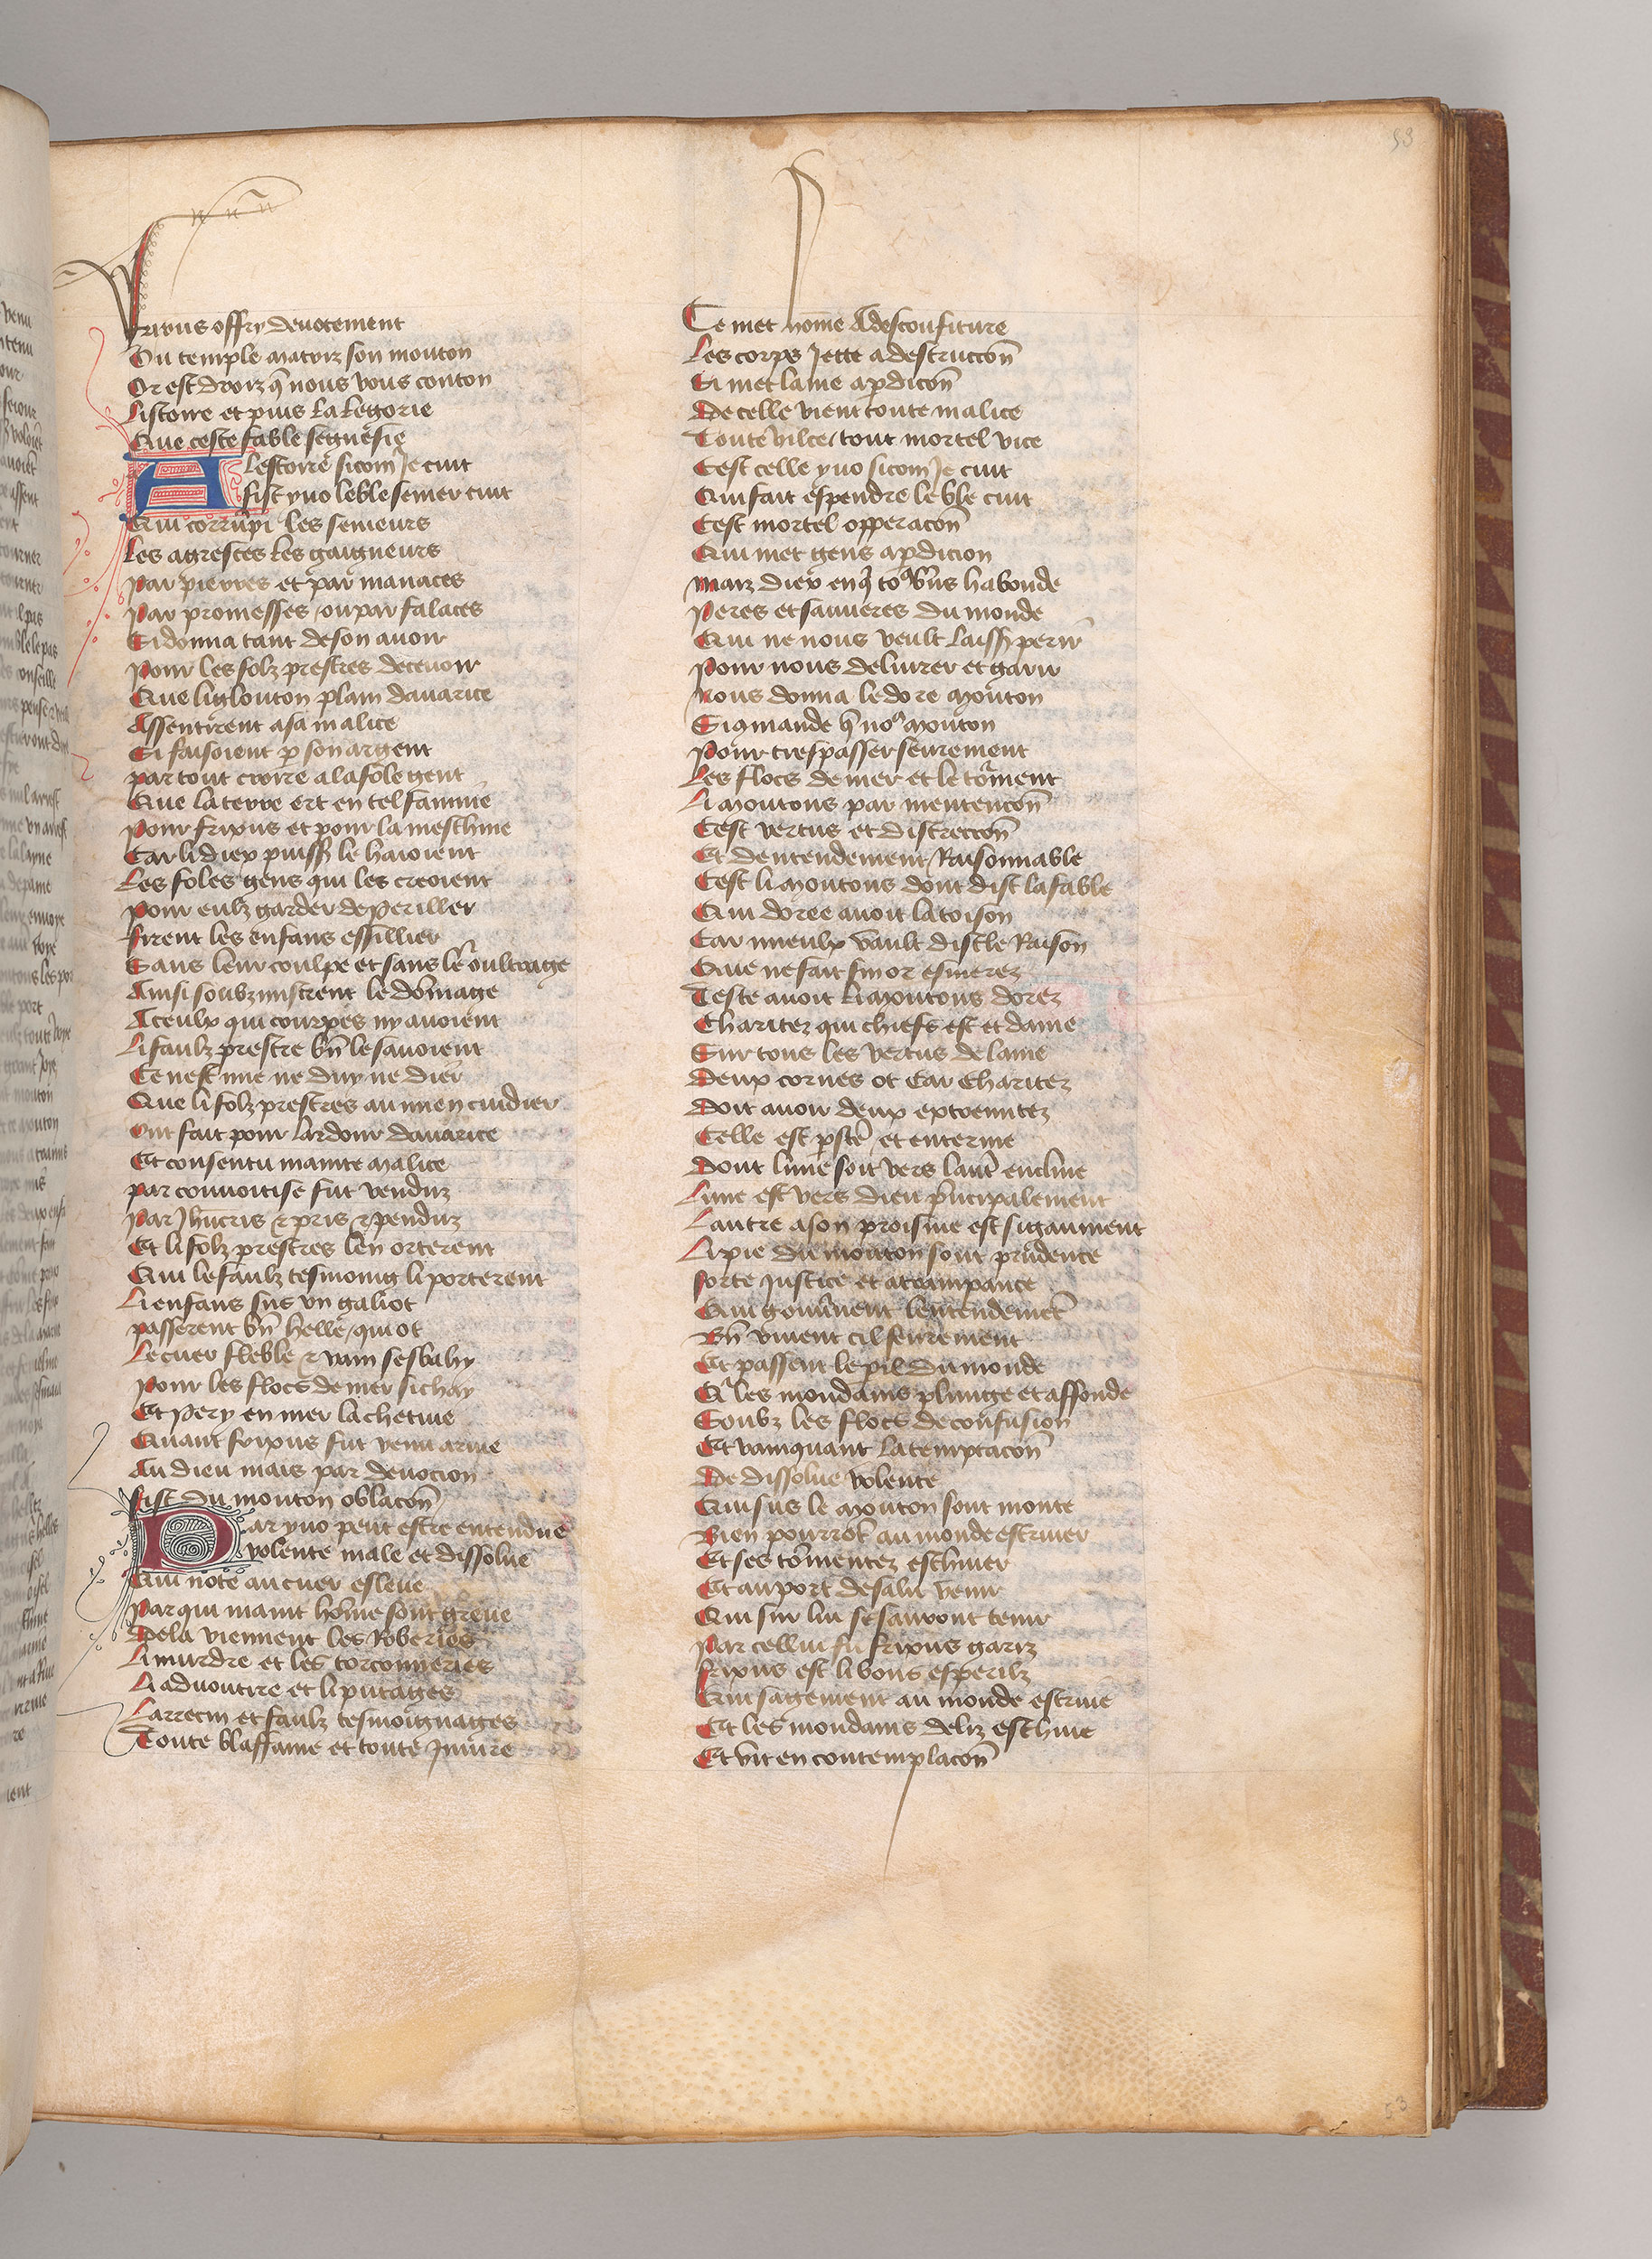 53
Frixus offry devotement
Ou temple matorz son mouton
Or est droiz q̄ nous vous conton
Listoire et puis lalegorie
Que ceste fable segnefie
A lestoire sicom Je cuit
fist yno leble semer cuit
Qui corrūpi les semeurs
Les agrestes les gaigneurs
Par pierres et par manaces
Par promesses / ou par falaces
Si donna tant de son avoir
Pour les folz prestres decevoir
Que li glouton plain davarice
Assentirent a sa malice
Si faisoient p̱ son argent
par tout croire a la fole gent
Que la terre ert en tel famine
Pour frixus et pour la meschine
Car li diex puiss̄ le haioient
Les foles gens qui les creoient
Pour eulz garder de periller
firent les enfans essillier
Sans leur coulpe et sans le᷑ oultrage
Ainsi soubzmistrent le domage
A ceulx qui courpes ny avoient
Li faulz prestre bn̄ le savoient
Ce nest mie ne duy ne dier
Que li folz prestres au mien cuidier
Ont fait pour lardour davarice
Et consentu mainte malice
par convoitise fut venduz
Par Jhūcris ⁊ pris ⁊ penduz
Et li folz prestres len orterent
Qui le faulz tesmoing li porterent
Li enfans sus vn galiot
passerent bn̄ helle / qui ot
Le cuer fleble ⁊ vain sesbahy
Pour les flocs de mer si chay
Et Pery en mer la chetive
Quant frixus fut venu a rive
Au dieu mars par devocion
fist du mouton oblacon̄
Par yno peut estre entendue
volente male et dissolue
Qui note au cuer esleue
Par qui maint hōme sont greue
De la viennent les Roberies
Li murdre et les torconneries
Li advoutire et li putages
Larrecin et faulz tesmoignages
Toute blaffame et toute Jniure
Ce met home A desconfiture
Les corps Jette a destruccon̄
Si met lame a p̱dicon̄
De celle vient toute malice
Toute vilte / tout mortel vice
Cest celle yno sicom Je cuit
Qui fait espendre le ble cuit
Cest mortel opperacon̄
Qui met gens a p̱dicion
Marz diex en q̄ to⁹ bn̄s habonde
Peres et sauueres du monde
Qui ne nous veult laiss̄ perir
Pour nous deliurer et garir
Nous donna le dore mouton
Si 9mande q̄ no⁹ mouton
Pour trespasser seurement
Les flocs de mer et le torment
Li moutons par mentencon̄
Cest vertus et discreccon̄
Et dentendement Raisonnable
Cest li moutons dont dist la fable
Qui doree avoit la toison
Car mieulx vault dist le Raison
Que ne fait fin or esmerez
Teste avoit li moutons dorez
Charitez qui chiefs est et dame
Sur tous les vertus de lame
Deux cornes ot Car Charitez
Doit avoir deux extremitez
Celle est p̱ste et enterine
Dont lune soit vers laut̄ encline
Lune est vers dieu p̄ncipalement
Lautre a son proisme est sigaument
Li pie du mouton sont prudence
force Justice et atrampance
Qui gouūnent lentendemēt
Bn̄ vivent cil seurement
Et passent le p̱il du monde
Q̄ les mondains plunge et affonde
Soubz les flocs de confusion
Et vainquant la temptacon̄
De dissolue volente
Qui sus le mouton sont monte
Bien pourrōt au monde estriver
Et ses tormentez eschiver
Et au port de salu venir
Qui sur lui se sauront tenir
Par cellui fu frixus gariz
frixus est li bons esperilz
Qui sagement au monde estrive
Et les mondains deliz eschive
Et vit en contemplacon̄
53